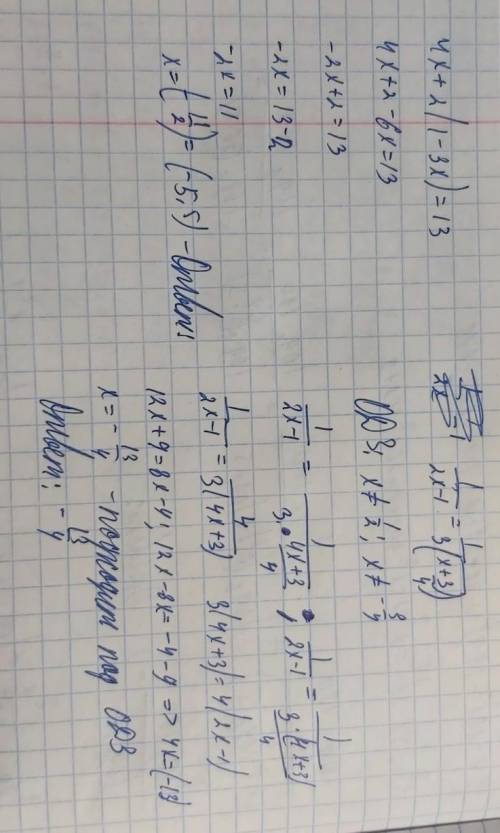 4x+2(1-3x)=13
4x+2-6x=13
-2x+2=13
-2x=13-2
-2x=11
x=(-11/2)=(-5,5) - Ответ:
1/(2x-1) = 1/(3(x+3/4))
ОДЗ: x≠1/2; x≠-3/4
1/(2x-1) = 1/(3·(4x+3)/4) ; 1/(2x-1) = 1/(3·(4x+3)/4)
1/(2x-1) = 4/(3(4x+3)) 3(4x+3)=4(2x-1)
12x+9=8x-4; 12x-8x=-4-9 => 4x=(-13)
x=-13/4 - подходит под ОДЗ
Ответ: -13/4